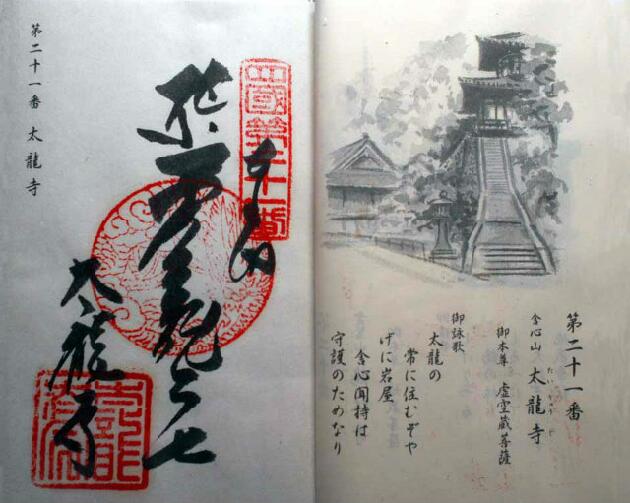 第二十一番
舎心山 太龍寺
たいりゅうじ
御本尊 虚空蔵菩薩
御詠歌
太龍の
常に住むぞや
げに岩屋
舎心聞持は
守護のためなり
四國第二十一番
奉納
太龍寺
第二十一番 太龍寺